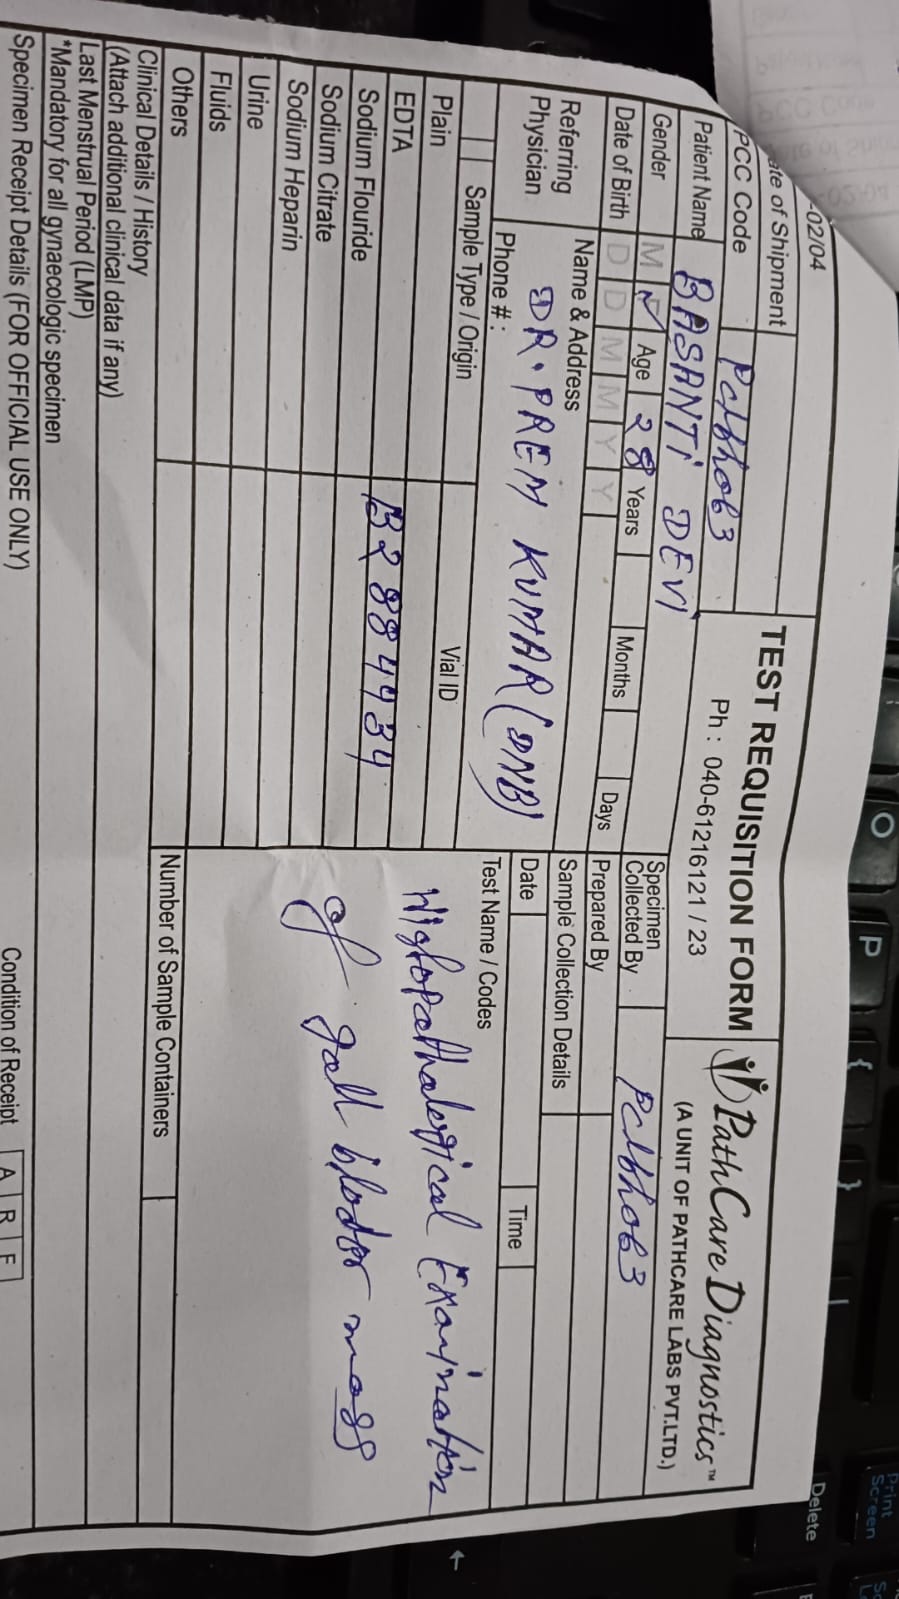 -02/04
TEST REQUISITION FORM
Ph : 040-61216121 / 23
PathCare Diagnostics™
(A UNIT OF PATHCARE LABS PVT.LTD.)
ate of Shipment
PCC Code
Patient Name BASANTI DEVI
Gender M ✓ Age 28 Years Months Days
Date of Birth D D M M Y Y
Specimen
Collected By
Prepared By
Referring
Physician
Name & Address
DR. PREM KUMAR (DNB)
Phone # :
Sample Collection Details
Date Time
Sample Type / Origin Vial ID
Test Name / Codes
Plain
EDTA
Sodium Flouride B2884934
Sodium Citrate
Sodium Heparin
Urine
Fluids
Others
Histopathalogical Examination
of gall blador mass
Number of Sample Containers
Clinical Details / History
(Attach additional clinical data if any)
Last Menstrual Period (LMP)
*Mandatory for all gynaecologic specimen
Specimen Receipt Details (FOR OFFICIAL USE ONLY) Condition of Receipt A R F
O
P
{
}
Delete
Print
Screen